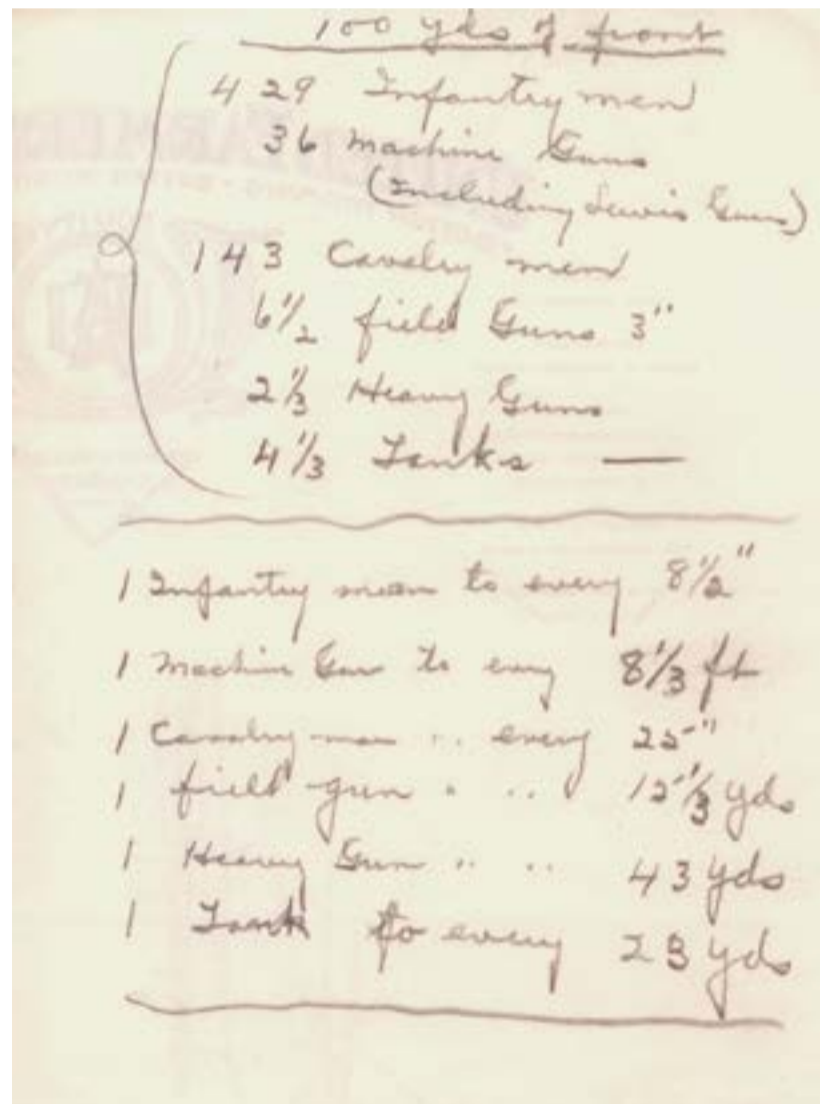 100 yds of front
429 Infantry men
36 Machine Guns
(Including Lewis Guns)
143 Cavalry men
6 1/2 field Guns 3"
2 1/3 Heavy Guns
4 1/3 Tanks —
1 Infantry man to every 8 1/2"
1 Machine Gun to every 8 1/3 ft
1 Cavalry man " every 25"
1 field gun " " 15 1/3 yds
1 Heavy Gun " " 43 yds
1 Tank to every 23 yds